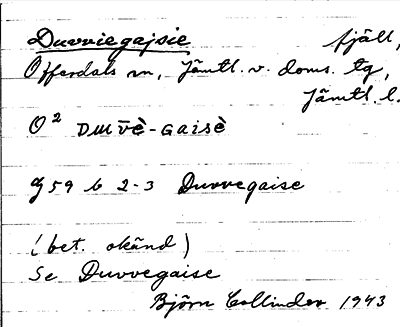 Duvviegajsie fjäll,
Offerdals sn, Jämtl. v. doms. tg,
Jämtl. l.
O² Duv̄è-gaisè
g59 b 2-3 Duvvegaise
(bet. okänd)
Se Duvvegaise
Björn Collinder 1943